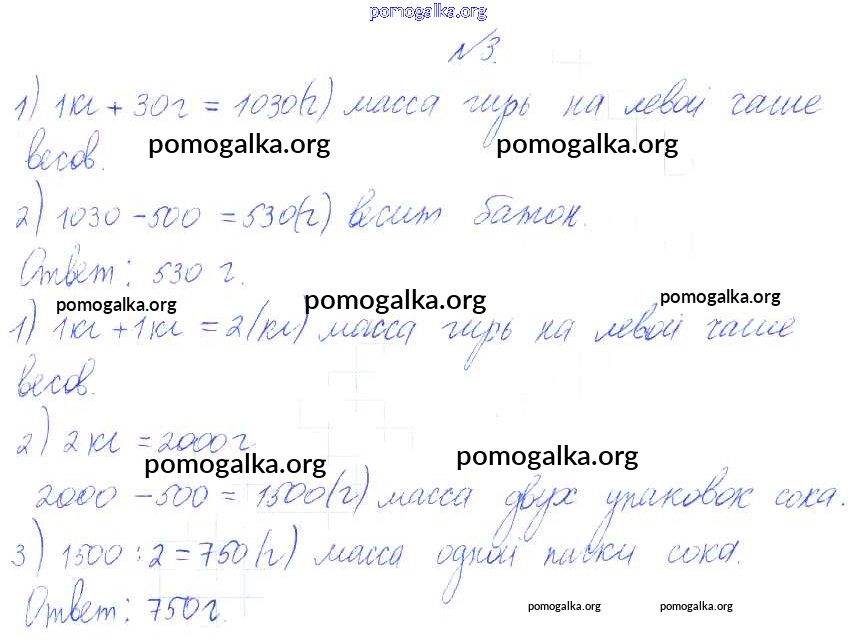 pomogalka.org
№3.
1) 1кг + 30г = 1030(г) масса гирь на левой чаше
pomogalka.org pomogalka.org
весов.
2) 1030 - 500 = 530(г) весит батон.
Ответ: 530 г.
pomogalka.org pomogalka.org pomogalka.org
1) 1кг + 1кг = 2(кг) масса гирь на левой чаше
весов.
2) 2кг = 2000г
pomogalka.org pomogalka.org
2000 - 500 = 1500(г) масса двух упаковок сока.
3) 1500 : 2 = 750(г) масса одной пачки сока.
Ответ: 750г.
pomogalka.org pomogalka.org